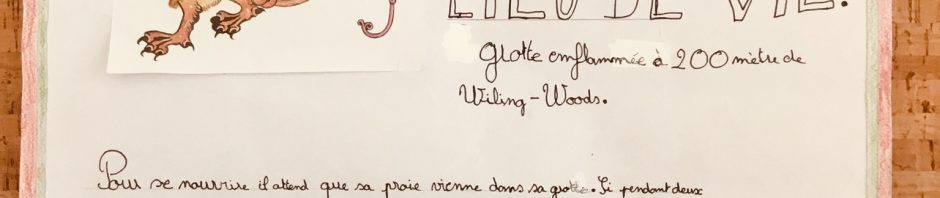 LIEU DE VIE.
Glotte enflammée à 200 mètre de
Wiling-Woods.
Pour se nourrire il attend que sa proie vienne dans sa grotte. Si pendant deux